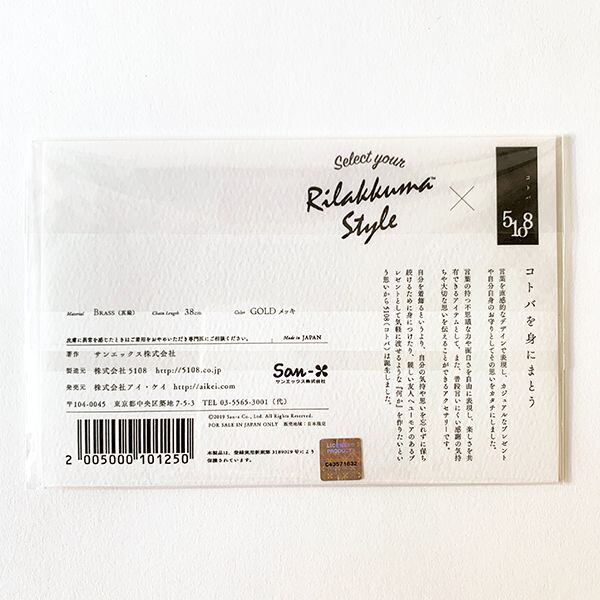 Select your
Rilakkuma™
Style
×
コトバ
5108
コトバを身にまとう
言葉を直感的なデザインで表現し、カジュアルなプレゼント
や自分自身のお守りとしてその思いをカタチにしました。
言葉の持つ不思議な力や面白さを自由に表現し、楽しさを共
有できるアイテムとして、また、普段言いにくい感謝の気持
ちや大切な思いを伝えることができるアクセサリーです。
自分を着飾るというより、自分の気持や思いを忘れずに保ち
続けるために身につけたり、親しい友人へユーモアのあるプ
レゼントとして気軽に渡せるような『何か』を作りたいとい
う思いから5108（コトバ）は誕生しました。
Material BRASS（真鍮） Chain Length 38cm Color GOLD メッキ
皮膚に異常を感じたときはご着用をおやめいただき専門医にご相談ください。 Made in JAPAN
著作 サンエックス株式会社
製造元 株式会社 5108 http://5108.co.jp
発売元 株式会社アイ・ケイ http://aikei.com
〒104-0045 東京都中央区築地 7-5-3 TEL 03-5565-3001（代）
San-X
サンエックス株式会社
©2019 San-x Co., Ltd. All Rights Reserved.
FOR SALE IN JAPAN ONLY 販売地域：日本限定
本製品は、登録実用新案第 3189029 号により
保護されています。
2 005000 101250
LICENSED
PRODUCT
C43571832